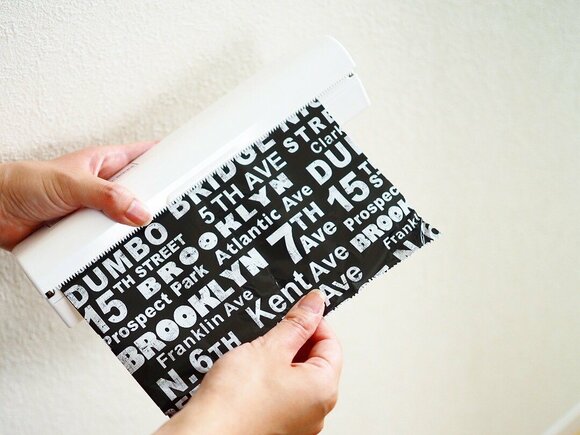 DUMBO BRIDGE
5TH AVE STRE
Clark
15TH STREET BROOKLYN DU
Prospect Park Atlantic Ave 15TH ST
BROOKLYN 7TH Ave Prospect
Franklin Ave BROOK
N.6TH Kent Ave Frankl
Ave